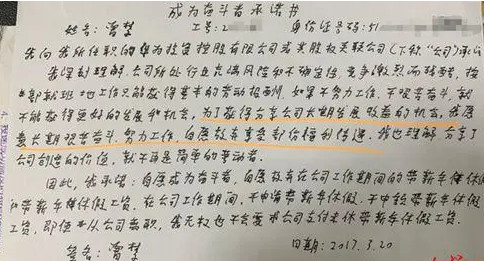 成为奋斗者承诺书
姓名:曾梦 工号:2 身份证号码:51
我向我所任职的华为投资控股有限公司或其股权关联公司(下称“公司)承
我深刻理解,公司所处行业充满风险和不确定性,竞争激烈而残酷,按
部就班地工作只能获得基本的劳动报酬,如果不努力工作,不艰苦奋斗,就
不能获得更好的发展和机会,为了获得分享公司长期发展收益的机会,我愿
意长期艰苦奋斗、努力工作,自愿放弃享受部份福利待遇。我也理解,分享了
公司创造的价值,就不再是简单的劳动者。
因此,我承诺:自愿成为奋斗者,自愿放弃在公司工作期间的带薪年休休
带薪年休假工资。在公司工作期间,不申请带薪年休假,不申报带薪年休假
工资,即使从公司离职,我无权也不会要求公司支付未休带薪年休假工资。
签名:曾梦 日期:2017.3.20